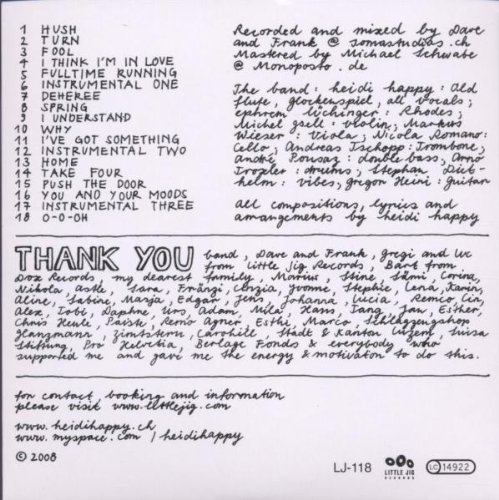 1 HUSH
2 TURN
3 FOOL
4 I THINK I'M IN LOVE
5 FULLTIME RUNNING
6 INSTRUMENTAL ONE
7 DEHEREE
8 SPRING
9 I UNDERSTAND
10 WHY
11 I'VE GOT SOMETHING
12 INSTRUMENTAL TWO
13 HOME
14 TAKE FOUR
15 PUSH THE DOOR
16 YOU AND YOUR MOODS
17 INSTRUMENTAL THREE
18 O-O-OH
Recorded and mixed by Dave
and Frank @ somastudios.ch
Mastered by Michael Schwabe
@ Monoposto.de
The band: heidi happy: Old
flute, glockenspiel, all vocals;
ephrem lüchinger: Rhodes,
Michel gsell: violin, Markus
Wieser: Viola, Nicola Romanò:
Cello, Andreas Tschopp: Trombone,
andré Pousaz: double bass, Arno
Troxler: drums, Stephan Diet-
helm: vibes, gregor Heini: guitar
all compositions, lyrics and
arrangements by heidi happy
THANK YOU band, Dave and Frank, gregi and Uc
from little Jig Records, Bart from
Dox Records, my dearest family, Marius, Stine, Sämi, Corina,
Nikola, Astle, Sara, Fränzi, Cinzia, Yvonne, Stephie, Lena, Karin,
Aline, Sabine, Marja, Edgar, Jens, Johanna, Lucia, Remco, Lin,
Alex, Tobi, Daphne, Urs, Adam, Mila, Hans, Tang, Jan, Esther,
Chris Heule, Paiste, Remo Agner, Esthi, Marco, Schlagzeugshop
Hangmann, Zindstorn, Caroville, Stadt & Kanton Luzern, Suisa
Stiftung, Pro Helvetia, Berlage Fonds & everybody who
supported me and gave me the energy & motivation to do this.
for contact, booking and information
please visit www.littlejig.com
www.heidihappy.ch
www.myspace.com/heidihappy
© 2008
LJ-118
LITTLE JIG
RECORDS
LC 14922